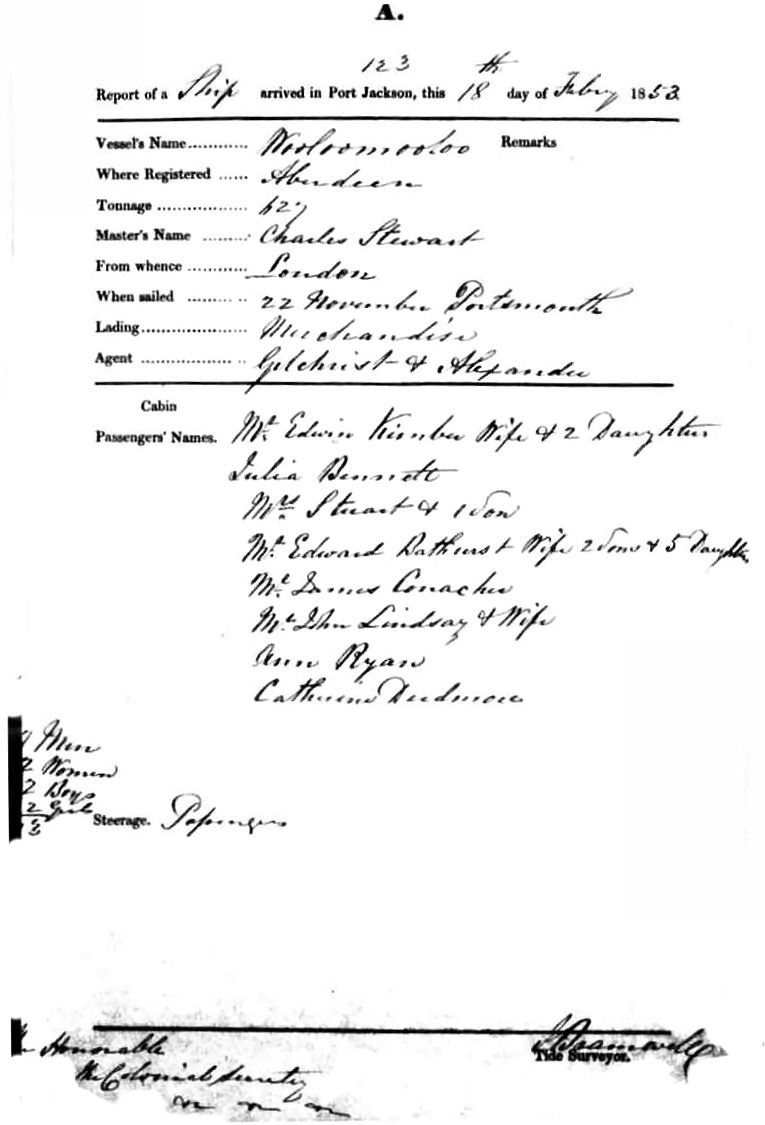 A.
123
Report of a Ship arrived in Port Jackson, this 18th day of Febry 1853
Vessel's Name............ Wooloomooloo Remarks
Where Registered ...... Aberdeen
Tonnage .................. 627
Master's Name ......... Charles Stewart
From whence ............ London
When sailed ......... .. 22 November Portsmouth
Lading..................... Merchandise
Agent .................. .. Gilchrist & Alexander
Cabin
Passengers' Names. Mr. Edwin Kimber Wife & 2 Daughters
Julia Bennett
Mrs Stuart & 1 Son
Mr. Edward Bathurst Wife 2 Sons & 5 Daughters
Mr. James Conacher
Mr. John Lindsay & Wife
Ann Ryan
Catherine Dudmore
Men
2 Women
2 Boys
2 Girls
13
Steerage. Passengers
Honorable
the Colonial Secretary
J Bramwell
Tide Surveyor.